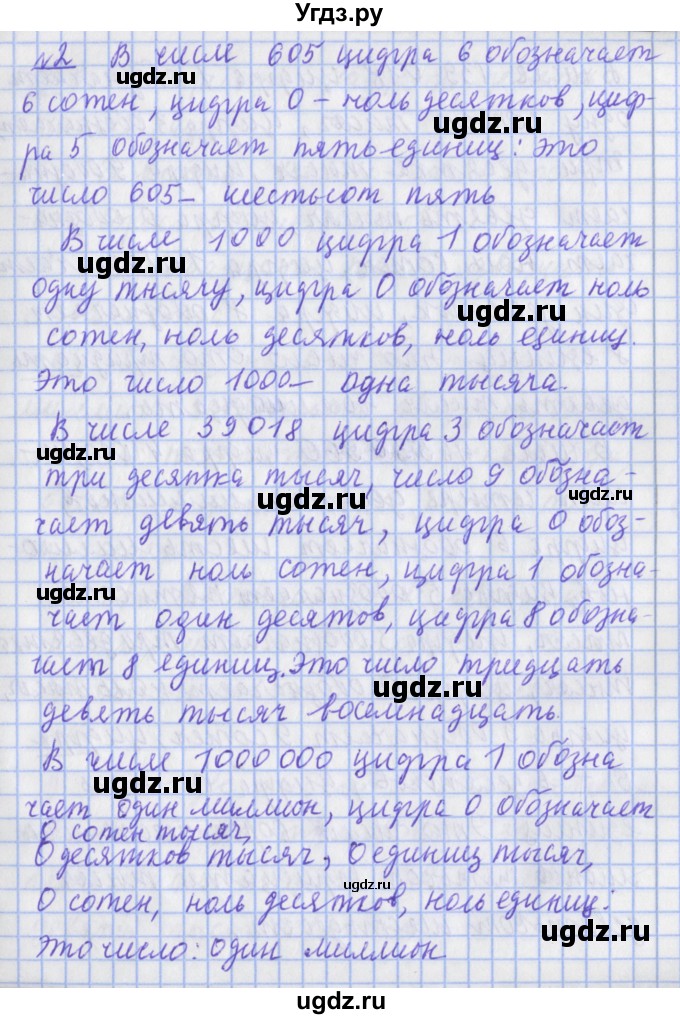 Угдз.ру
№2 В числе 605 цифра 6 обозначает
ugdz.ru
6 сотен, цифра 0 – ноль десятков, циф-
ugdz.ru
ра 5 обозначает пять единиц: это
число 605 – шестьсот пять
ugdz.ru
В числе 1000 цифра 1 обозначает
ugdz.ru
одну тысячу, цифра 0 обозначает ноль
ugdz.ru
сотен, ноль десятков, ноль единиц.
Это число 1000 – одна тысяча.
В числе 39018 цифра 3 обозначает
ugdz.ru
три десятка тысяч, число 9 обозна-
ugdz.ru
ugdz.ru
чает девять тысяч, цифра 0 обоз-
начает ноль сотен, цифра 1 обозна-
ugdz.ru
чает один десятов, цифра 8 обозна-
чает 8 единиц. Это число тридцать
ugdz.ru
девять тысяч восемнадцать
В числе 1000 000 цифра 1 обозна
ugdz.ru
чает один миллион, цифра 0 обозначает
0 сотен тысяч,
0 десятков тысяч, 0 единиц тысяч,
ugdz.ru
0 сотен, ноль десятков, ноль единиц:
ugdz.ru
это число: один миллион
ugdz.ru